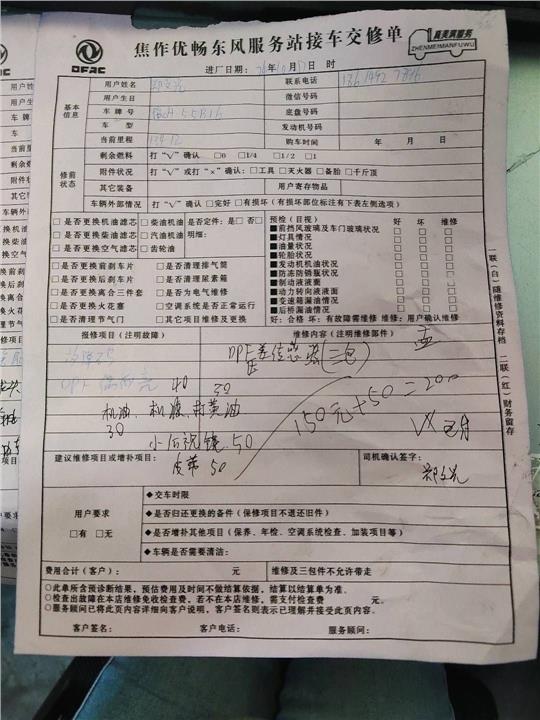 焦作优畅东风服务站接车交修单
DFAC
真美满服务
ZHENMEIMANFUWU
进厂日期: 年 月 日 时
基本信息
用户姓名 联系电话
用户生日 微信号码
车牌号 底盘号码
车型 发动机号码
当前里程 购车时间 年 月 日
修前状态
剩余燃料 打“√”确认 □0 □1/4 □1/2 □1
附件状况 打“√”或打“×”确认:□工具 □灭火器 □备胎 □千斤顶
其它装备 用户寄存物品
车辆外部情况 打“√”确认 □完好 □有损坏(有损坏部位标注有下表左侧选项)
□是否更换机油滤芯 □柴油机油 是否定件:是□否□
□是否更换柴油滤芯 □汽油机油 明细:
□是否更换空气滤芯 □齿轮油
□是否更换前刹车片 □是否清理排气筒
□是否更换后刹车片 □是否清理尿素箱
□是否更换离合三件套 □是否为电气维修
□是否更换火花塞 □空调系统是否正常运行
□是否清理节气门 □其它项目维修及更换
预检(目视) 好 坏 维修
■前挡风玻璃及车门玻璃状况 □ □ □
■灯具情况 □ □ □
■油量状况 □ □ □
■轮胎状况 □ □ □
■发动机机油情况 □ □ □
■防冻防锈瓶状况 □ □ □
■制动液液面 □ □ □
■动力转向液液面 □ □ □
■变速箱漏油情况 □ □ □
■后桥漏油情况 □ □ □
好:合格 坏:有故障需维修 维修:用户确认维修
报修项目(注明故障) 维修内容(注明维修部件)
DPF差压传感器(三包)
40 30
机油、机滤、打黄油
30
150元+50=200
小后视镜 50
建议维修项目或增补项目: 皮带 50
司机确认签字:
用户要求
□有 □无
◆交车时限
◆是否归还更换的备件(保修项目不退还旧件)
◆是否增补其他项目(保养、年检、空调系统检查、加装项目等)
◆车辆是否需要清洁:
费用合计(客户): 元 维修及三包件不允许带走
○此单所含预诊断结果,预估费用及时间不做结算依据,结算以结算单为准。
○检查出故障在本店维修免收检查费,若不在本店维修,需支付检查费 元。
○服务顾问已将此页内容详细向客户说明,客户签名则表示已理解并接受此页内容。
客户签名: 客户电话: 服务顾问:
一联(白)随维修资料存档 二联(红)财务留存